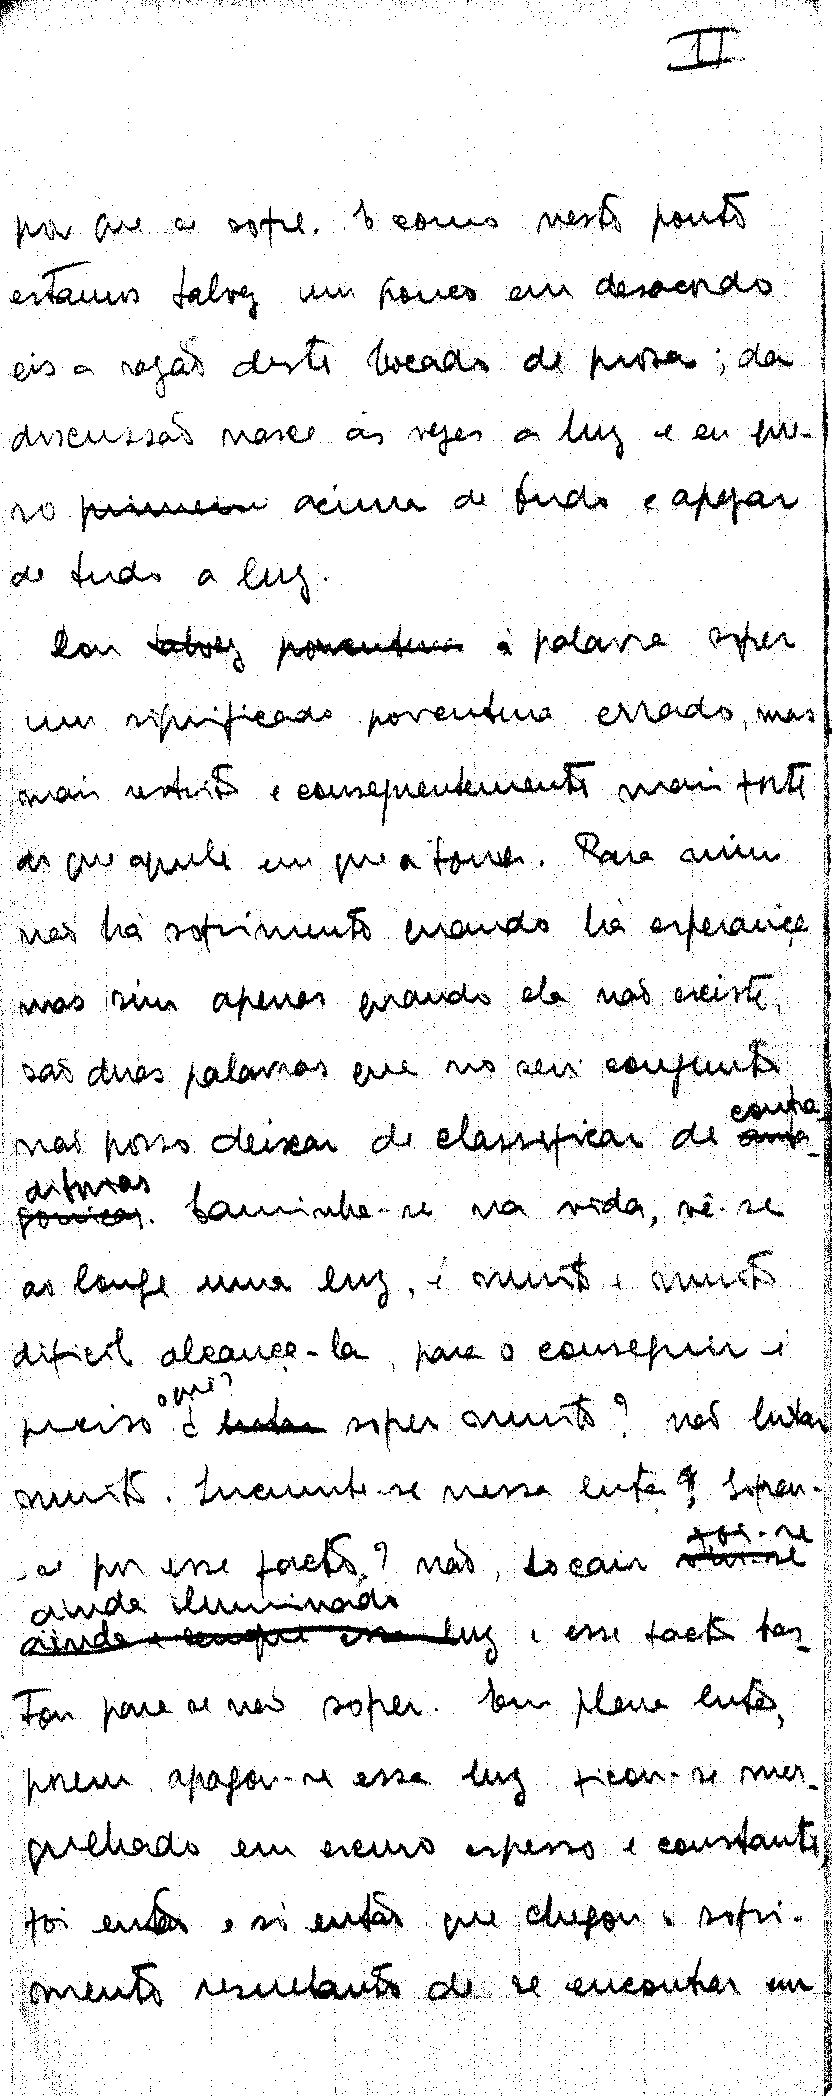 II
por que se sofre. E como neste ponto
estamos talvez um pouco em desacordo
eis a razão deste bocado de prosa; da
discussão nasce ás vezes a luz e eu que-
ro primeiro acima de tudo e apezar
de tudo a luz.
Dou talvez porventura á palavra sofrer
um significado porventura errado, mas
mais restrito e consequentemente mais forte
do que aquele em que a toma. Para mim
não há sofrimento quando há esperança
mas sim apenas quando ela não existe,
são duas palavras que no seu conjunto
não posso deixar de classificar de contra- anta-
ditorias gonicas. Caminha-se na vida, vê-se
ao longe uma luz, é muito e muito
dificil alcança-la, para o conseguir é
preciso o quê? é lutar sofrer muito? não lutar
muito. Sucumbe-se nessa luta? Sofreu-
-se por esse facto? não, to cair foi-se
ainda iluminado
ainda e sempre essa luz e esse facto bas-
tou para se não sofrer. Em plena luta,
porem apagou-se essa luz ficou-se mer-
gulhado em escuro espesso e constante,
foi então e só então que chegou o sofri-
mento resultante de se encontrar um